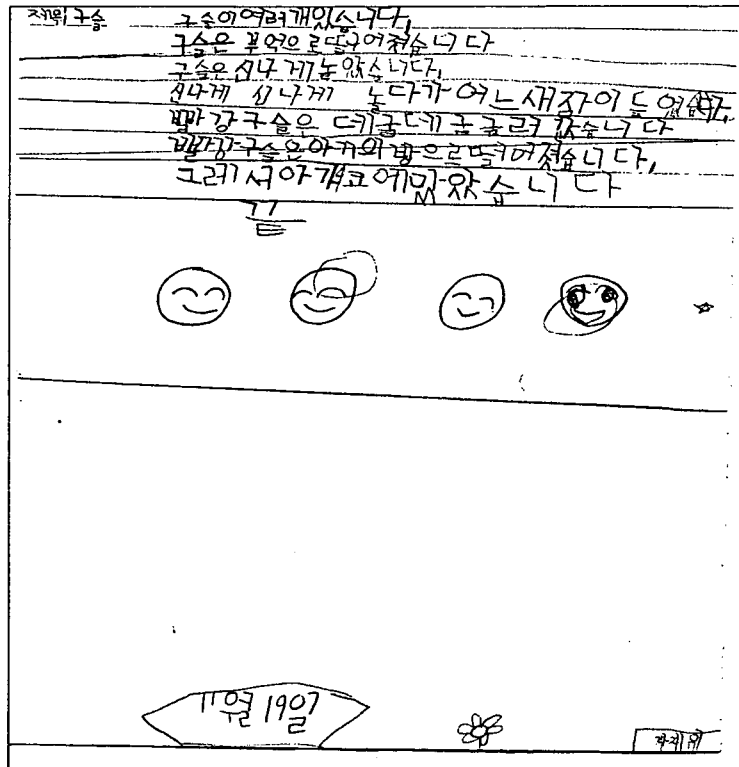 구슬 구슬이여러개있습니다.
구슬은 부엌으로떨구어졌습니다
구슬은신나게놀았습니다.
신나게 신나게 놀다가 어느새잠이들었습니다.
빨강구슬은 데굴데굴굴러갔습니다
빨강구슬은아가의방으로떨어졌습니다.
그래서아가코에맞았습니다
끝
11월 19일